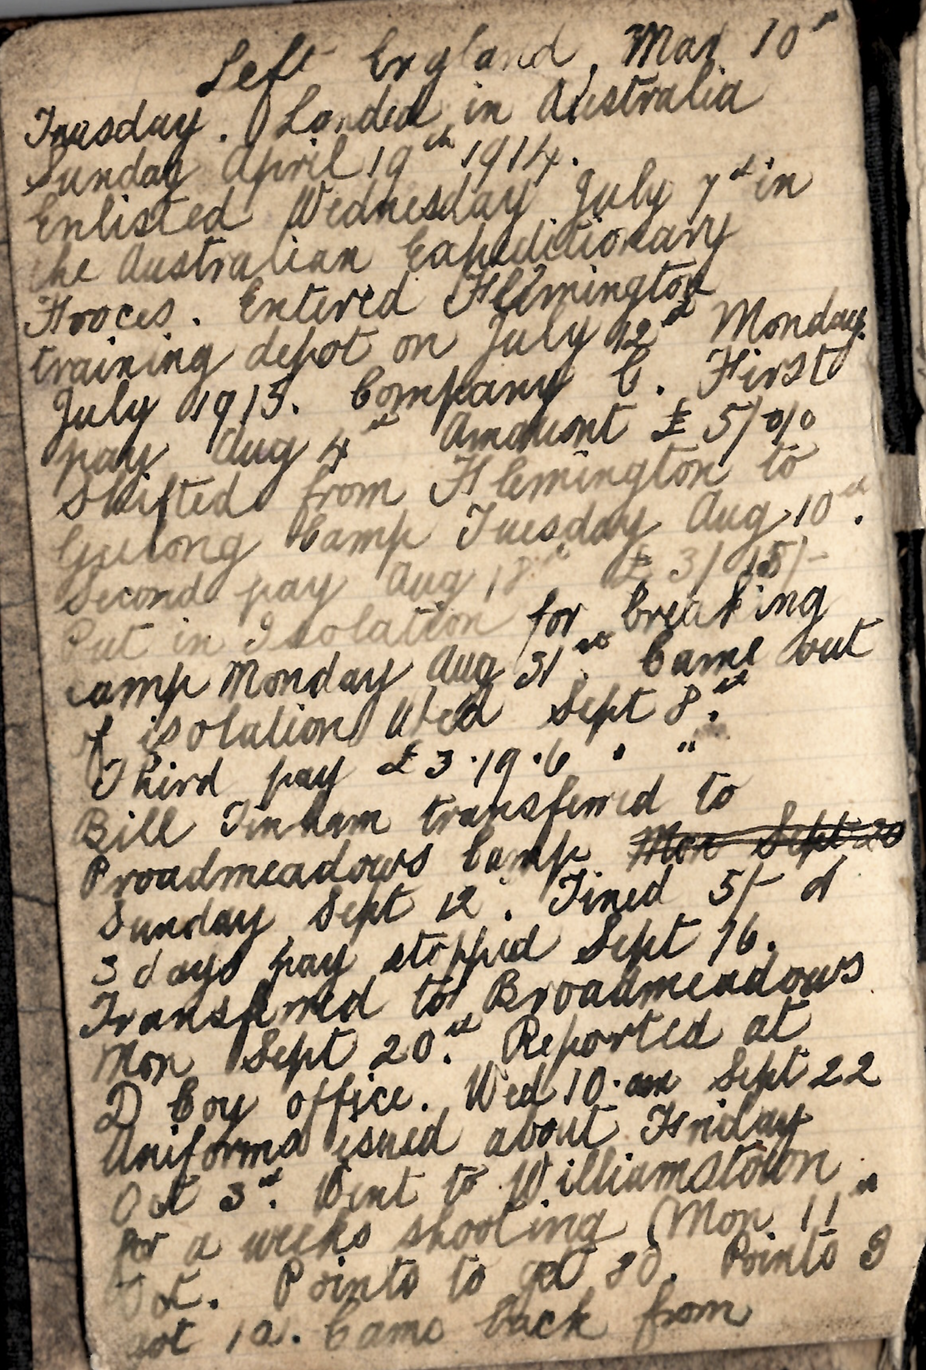 Left England, Mar 10th
Tuesday. Landed in Australia
Sunday April 19th 1914.
Enlisted Wednesday July 7th in
the Australian Expeditionary
Forces. Entered Flemington
training depot on July 12th Monday
July 1915. Company C. First
pay Aug 4th Amount £5/0/0
Shifted from Flemington to
Geelong Camp Tuesday Aug 10th.
Second pay Aug 18th £3/15/-
Put in Isolation for breaking
camp Monday Aug 31st. Came out
of isolation Wed Sept 8th.
Third pay £3.19.6 " "
Bill transferred to
Broadmeadows Camp Mon Sept 20
Sunday Sept 12. Fined 5/-
3 days pay stopped Sept 16.
Transferred to Broadmeadows
Mon Sept 20th. Reported at
D Coy office. Wed 10. Sept 22
Uniforms issued about Friday
Oct 3rd. Went to Williamstown
for a weeks shooting (Mon 11th
Oct. Points to get 30. Points I
got . Came back from